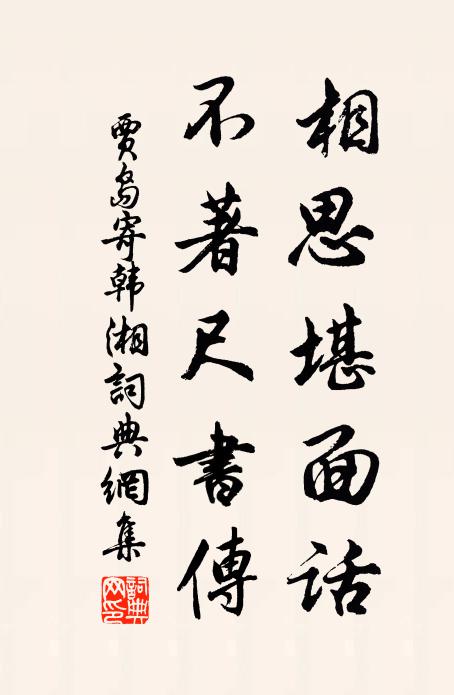 相思堪面話
不著尺書傳
賈島寄韓湘詞典網集
詞典网印